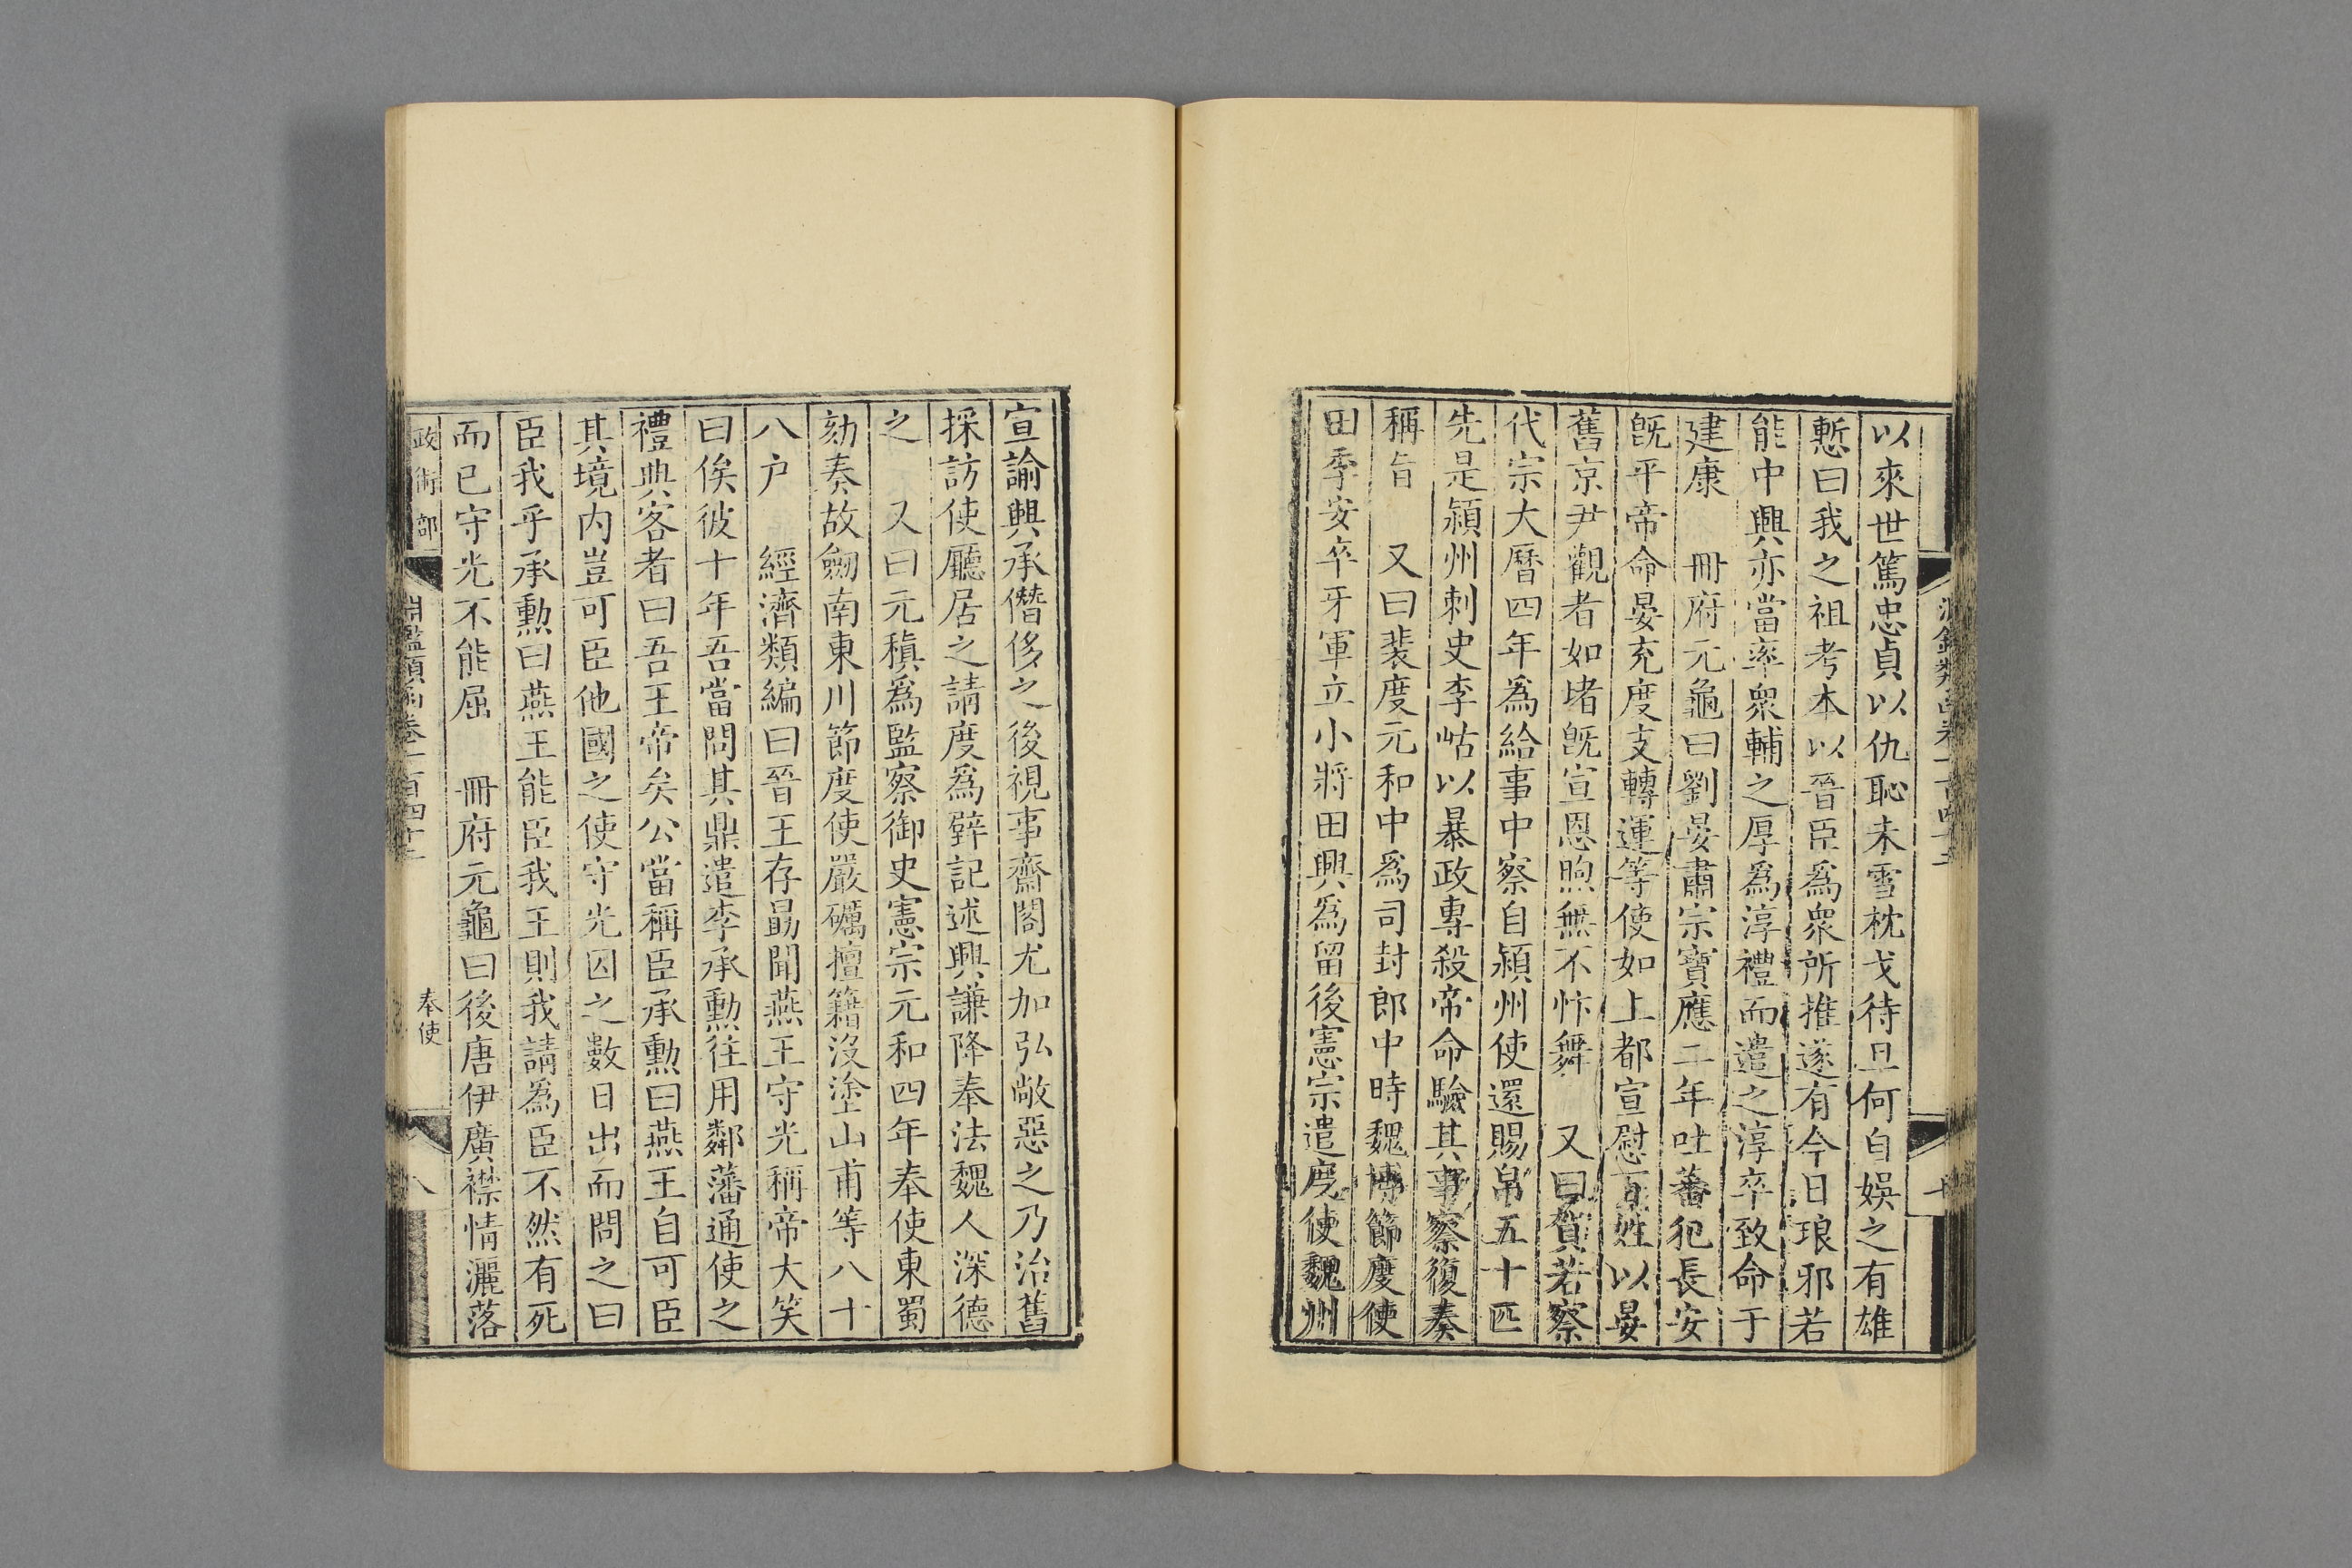 以來世篤忠貞以仇恥未雪枕戈待旦何自娛之有雄
慙曰我之祖考本以晉臣爲衆所推遂有今日琅邪若
能中興亦當率衆輔之厚爲淳禮而遣之淳卒致命于
建康　冊府元龜曰劉晏肅宗寶應二年吐蕃犯長安
旣平帝命晏充度支轉運等使如上都宣慰百姓以晏
舊京尹觀者如堵旣宣恩煦無不忭舞　又曰賀若察
代宗大曆四年爲給事中察自潁州使還賜帛五十匹
先是潁州刺史李岵以暴政專殺帝命驗其事察復奏
稱旨　又曰裴度元和中爲司封郎中時魏博節度使
田季安卒牙軍立小將田興爲留後憲宗遣度使魏州
宣諭興承僭侈之後視事齋閣尤加弘敞惡之乃治舊
採訪使廳居之請度爲壁記述興謙降奉法魏人深德
之　又曰元稹爲監察御史憲宗元和四年奉使東蜀
劾奏故劒南東川節度使嚴礪擅籍沒塗山甫等八十
八户　經濟類編曰晉王存勗聞燕王守光稱帝大笑
曰俟彼十年吾當問其鼎遣李承勲往用鄰藩通使之
禮典客者曰吾王帝矣公當稱臣承勲曰燕王自可臣
其境内豈可臣他國之使守光囚之數日出而問之曰
臣我乎承勲曰燕王能臣我王則我請爲臣不然有死
而已守光不能屈　冊府元龜曰後唐伊廣襟情灑落
政術部　淵鑑類函卷一百四十三　奉使　八